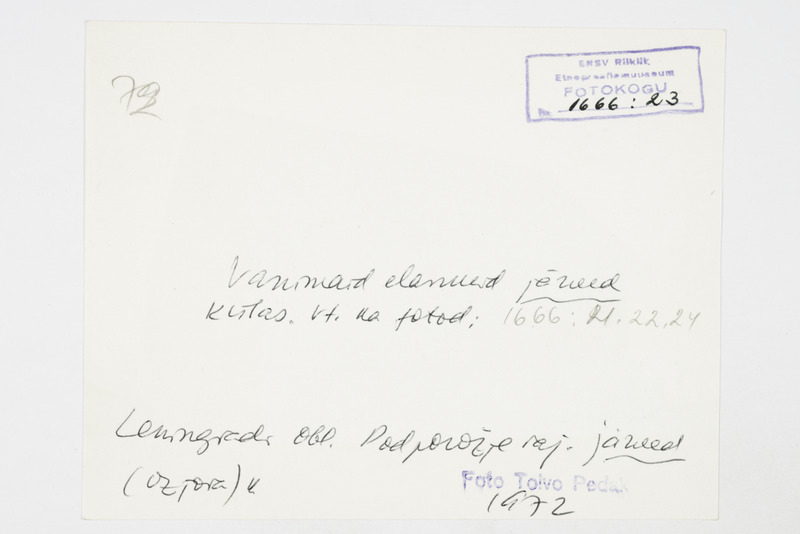 72
ENSV Riiklik
Etnograafiamuuseum
FOTOKOGU
No. 1666 : 23
Vanimaid elanikeid järved
külas. Vt. ka fotod: 1666 : 21. 22. 24
Leningradi obl. Podporožje raj. järved
(Ozjora) k.
Foto Toivo Pedak
1972